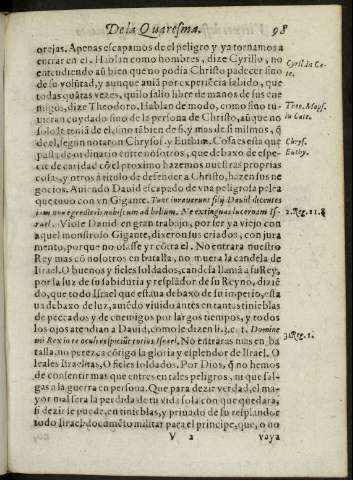 De la Quaresma. 98
orejas. Apenas escapamos de el peligro y ya tornamos a
entrar en el. Hablan como hombres, dize Cyrillo, no
entendiendo aũ bien que no podia Christo padecer sino
de su volũtad, y aunque auiã por experiẽcia sabido, que
todas quãtas vezes, quiso salio libre de manos de sus ene
migos, dize Theodoro. Hablan de modo, como sino tu-
uieran cuydado sino de la persona de Christo, aũque no
solo le teniã de el, sino tãbien de si, y mas de si mismos, q̃
de el, segun notaron Chrysost. y Euthim. Cosa es esta que
passa de ordinario entre nosotros, que debaxo de espe-
cie de caridad cõ el proximo hazemos nuestras proprias
cosas, y otros a titulo de defender a Christo, hazen sus ne
gocios. Auiendo Dauid escapado de vna peligrosa pelea
que tuuo con vn Gigante. Tunc iurauerunt filij Dauid dicentes
iam non egredieris nobiscum ad bellum. Ne extinguas lucernam Is-
rael. Viose Dauid en gran trabajo, por ser ya viejo con
aquel monstroso Gigante, dixeron sus criados, con jura
mento, porque no osasse yr cõtra el. No entrara nuestro
Rey mas cõ nosotros en batalla, no muera la candela de
Israel. O buenos y fieles soldados, candela llamã a su Rey,
por la luz de su sabiduria y resplãdor de su Reyno, dizié
do, que todo Israel que estaua debaxo de su imperio, esta
ua debaxo de luz, auiẽdo viuido antes en tantas tinieblas
de peccados y de enemigos por largos tiempos, y todos
los ojos atendian a Dauid, como le dizen li.3. c. 1. Domine
mi Rex in te oculi respiciũt totius Israel. No entraras mas en ba
talla, no perezca cõtigo la gloria y esplendor de Israel. O
leales Israelitas, O fieles soldados. Por Dios, q̃ no hemos
de consentir mas que entres en tales peligros, ni que sal-
gas a la guerra en persona. Que para dezir verdad, el ma-
yor mal sera la perdida de tu vida sola con que quedara,
si dezir se puede, en tinieblas, y priuado de su resplandor
todo Israel: documẽto militar para el principe, que, o no
V 2 vaya
Cyril. in Ca-
te.
Theo. Mops.
in Cate.
Chrys.
Euthy.
2. Reg. 21.
3. Reg. 1.